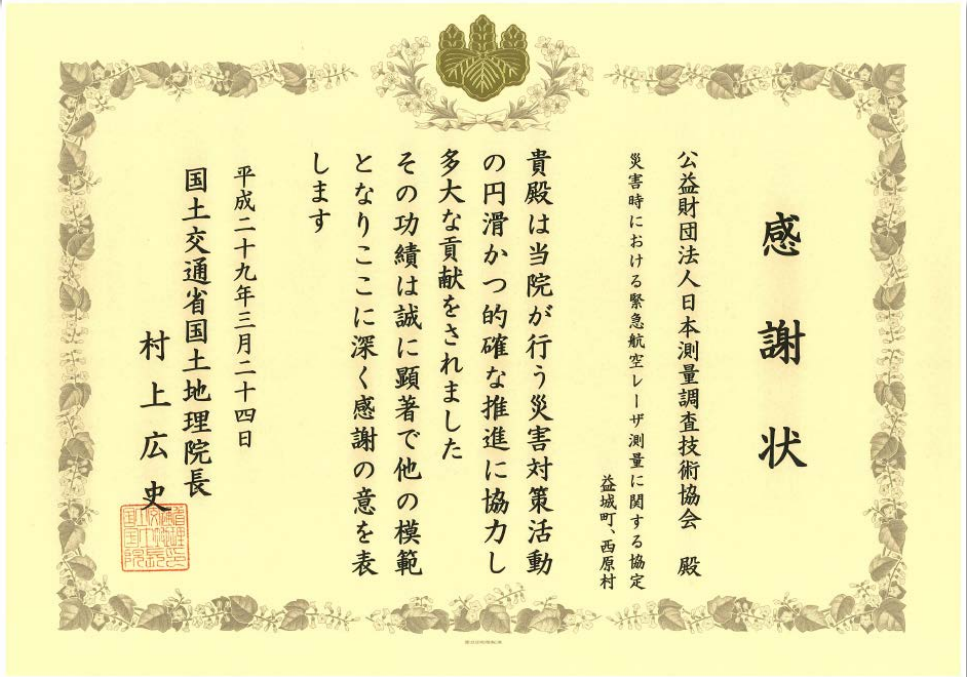 感謝状
公益財団法人日本測量調査技術協会 殿
災害時における緊急航空レーザ測量に関する協定
益城町、西原村
貴殿は当院が行う災害対策活動
の円滑かつ的確な推進に協力し
多大な貢献をされました
その功績は誠に顕著で他の模範
となりここに深く感謝の意を表
します
平成二十九年三月二十四日
国土交通省国土地理院長
村上広史